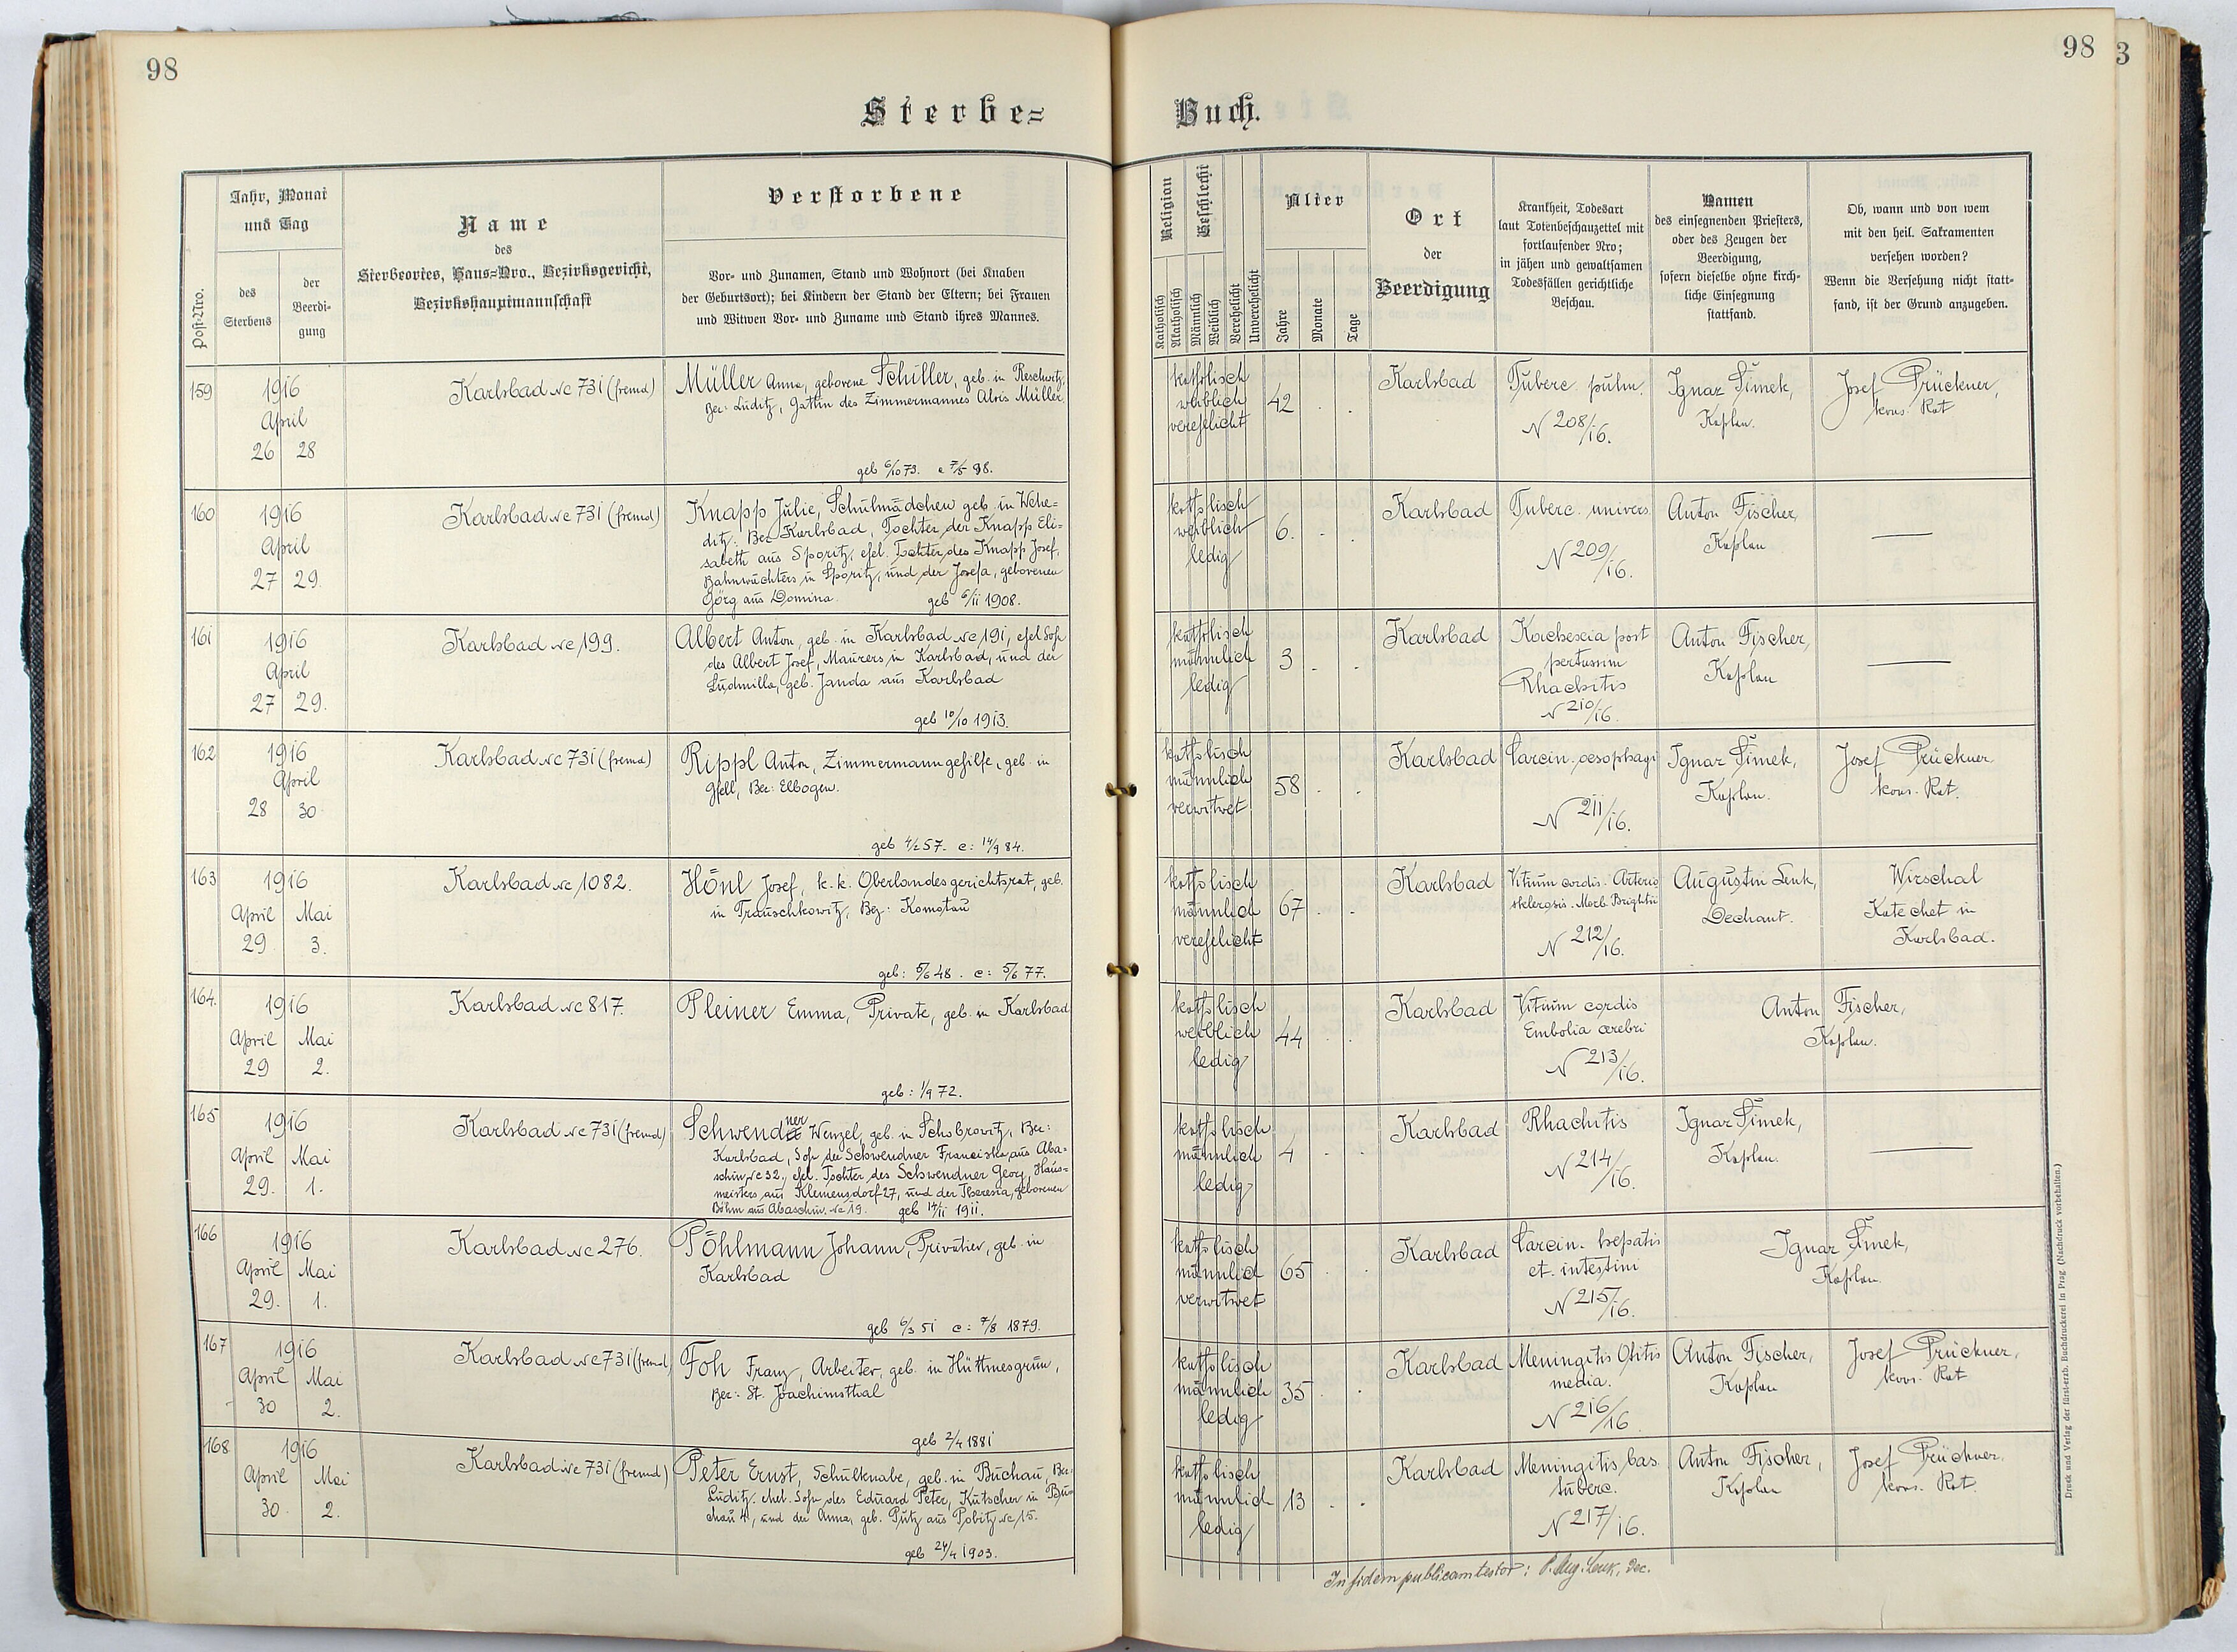 98
98
3
Sterbe=
Buch.
Post-Nro.
Jahr, Monat
und Tag
des
Sterbens
der
Beerdi-
gung
Name
des
Sterbeortes, Haus=Nro., Bezirksgericht,
Bezirkshauptmannschaft
Verstorbene
Vor- und Zunamen, Stand und Wohnort (bei Knaben
der Geburtsort); bei Kindern der Stand der Eltern; bei Frauen
und Witwen Vor- und Zuname und Stand ihres Mannes.
Religion
Katholisch
Akatholisch
Geschlecht
Männlich
Weiblich
Verehelicht
Unverehelicht
Alter
Jahre
Monate
Tage
Ort
der
Beerdigung
Krankheit, Todesart
laut Totenbeschauzettel mit
fortlaufender Nro;
in jähen und gewaltsamen
Todesfällen gerichtliche
Beschau.
Namen
des einsegnenden Priesters,
oder des Zeugen der
Beerdigung,
sofern dieselbe ohne kirch-
liche Einsegnung
stattfand.
Ob, wann und von wem
mit den heil. Sakramenten
versehen worden?
Wenn die Versehung nicht statt-
fand, ist der Grund anzugeben.
159
1916
April
26 28
Karlsbad Nc 731 (fremd)
Müller Anna, geborene Schiller, geb. in Reschwitz,
Bez: Luditz, Gattin des Zimmermannes Alois Müller.
geb 6/10 73. c 7/5 98.
katholisch
weiblich
verehelicht
42 . .
Karlsbad
Tuberc. pulm.
N 208/16.
Ignaz Šimek,
Kaplan.
Josef Prückner,
kons. Rat
160
1916
April
27 29.
Karlsbad Nc 731 (fremd)
Knapp Julie, Schulmädchen geb. in Wehe=
ditz: Bez Karlsbad, Tochter der Knapp Eli=
sabeth aus Sporitz, ehel. Tochter des Knapp Josef,
Bahnwächters in Sporitz, und der Josefa, geborenen
Görg aus Domina. geb 6/11 1908.
katholisch
weiblich
ledig
6. . .
Karlsbad
Tuberc. univers.
N 209/16.
Anton Fischer,
Kaplan
161
1916
April
27 29.
Karlsbad Nc 199.
Albert Anton, geb. in Karlsbad Nc 191, ehel Sohn
des Albert Josef, Maurers in Karlsbad, und der
Ludmilla, geb. Janda aus Karlsbad
geb 10/10 1913.
katholisch
männlich
ledig
3 . .
Karlsbad
Kachexia post
pertussim
Rhachitis
N 210/16.
Anton Fischer,
Kaplan
162
1916
April
28 30
Karlsbad Nc 731 (fremd)
Rippl Anton, Zimmermanngehilfe, geb. in
Gfell, Bez: Elbogen.
geb 4/2 57. c: 14/9 84.
katholisch
männlich
verwitwet
58 . .
Karlsbad
Carcin. oesophagi
N 211/16.
Ignaz Šimek,
Kaplan.
Josef Prückner
kons. Rat.
163
1916
April Mai
29 3.
Karlsbad Nc 1082.
Hönl Josef, k. k. Oberlandesgerichtsrat, geb.
in Trauschkowitz, Bez: Komotau
geb: 5/6 48. c: 5/6 77.
katholisch
männlich
verehelicht
67 . .
Karlsbad
Vitium cordis. Arterio
sklerosis. Morb. Brightii
N 212/16.
Augustin Lenk,
Dechant.
Wirschal
Katechet in
Karlsbad.
164.
1916
April Mai
29 2.
Karlsbad Nc 817.
Pleiner Emma, Private, geb. in Karlsbad
geb: 1/9 72.
katholisch
weiblich
ledig
44 . .
Karlsbad
Vitium cordis
Embolia cerebri
N 213/16.
Anton Fischer,
Kaplan.
165
1916
April Mai
29. 1.
Karlsbad Nc 731 (fremd)
Schwendner Wenzel, geb. in Schobrowitz, Bez:
Karlsbad, Sohn der Schwendner Franziska aus Aba=
schin Nc 32, ehel. Tochter des Schwendner Georg, Haus=
meisters aus Klemensdorf 27, und der Theresia, geborenen
Böhm aus Abaschin, Nc 19. geb 14/11 1911.
katholisch
männlich
ledig
4 . .
Karlsbad
Rhachitis
N 214/16.
Ignaz Šimek,
Kaplan.
166
1916
April Mai
29. 1.
Karlsbad Nc 276.
Pöhlmann Johann, Privatier, geb. in
Karlsbad
geb 6/3 51 c: 7/8 1879.
katholisch
männlich
verwitwet
65 . .
Karlsbad
Carcin. hepatis
et. intestini
N 215/16.
Ignaz Šimek,
Kaplan.
167
1916
April Mai
30 2.
Karlsbad Nc 731 (fremd)
Foh Franz, Arbeiter, geb. in Hüttmesgrün,
Bez: St. Joachimsthal
geb 2/4 1881
katholisch
männlich
ledig
35 . .
Karlsbad
Meningitis Otitis
media.
N 216/16
Anton Fischer,
Kaplan
Josef Prückner,
kons. Rat
168
1916
April Mai
30. 2.
Karlsbad Nc 731 (fremd)
Peter Ernst, Schulknabe, geb. in Buchau, Bez:
Luditz, ehel. Sohn des Eduard Peter, Kutscher in Bu=
chau 4, und der Anna, geb. Putz aus Pobitz Nc 15.
geb 24/4 1903.
katholisch
männlich
ledig
13 . .
Karlsbad
Meningitis bas.
tuberc.
N 217/16.
Anton Fischer,
Kaplan
Josef Prückner.
kons. Rat.
In fidem publicam testor: P. Aug. Lenk, Dec.
Druck und Verlag der fürst-erzb. Buchdruckerei in Prag. (Nachdruck vorbehalten.)